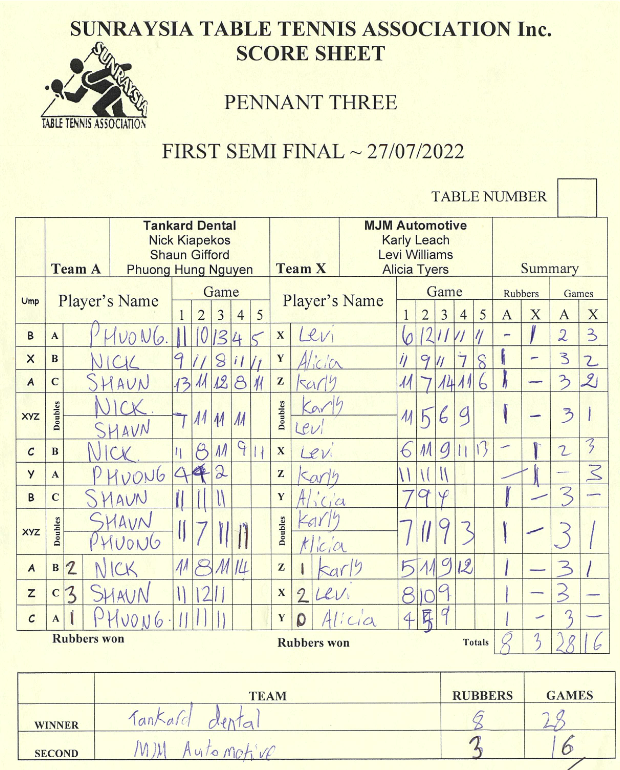 SUNRAYSIA TABLE TENNIS ASSOCIATION Inc.
SCORE SHEET
SUNRAYSIA
TABLE TENNIS ASSOCIATION
PENNANT THREE
FIRST SEMI FINAL ~ 27/07/2022
TABLE NUMBER
Team A Tankard Dental Nick Kiapekos Shaun Gifford Phuong Hung Nguyen Team X MJM Automotive Karly Leach Levi Williams Alicia Tyers Summary
Ump Player's Name Game Player's Name Game Rubbers Games
1 2 3 4 5 1 2 3 4 5 A X A X
B A PHUONG. 11 10 13 4 5 X Levi 6 12 11 11 11 - 1 2 3
X B NICK 9 11 8 11 11 Y Alicia 11 9 11 7 8 1 - 3 2
A C SHAUN 13 11 12 8 11 Z Karly 11 7 14 11 6 1 - 3 2
XYZ Doubles NICK. SHAUN 7 11 11 11 Doubles Karly Levi 11 5 6 9 1 - 3 1
C B NICK. 11 8 11 9 11 X Levi 6 11 9 11 13 - 1 2 3
Y A PHUONG 4 4 2 Z Karly 11 11 11 - 1 - 3
B C SHAUN 11 11 11 Y Alicia 7 9 4 1 - 3 -
XYZ Doubles SHAUN PHUONG 11 7 11 11 Doubles Karly Alicia 7 11 9 3 1 - 3 1
A B 2 NICK 11 8 11 14 Z 1 Karly 5 11 9 12 1 - 3 1
Z C 3 SHAUN 11 12 11 X 2 Levi 8 10 9 1 - 3 -
C A 1 PHUONG. 11 11 11 Y 0 Alicia 4 5 9 1 - 3 -
Rubbers won Rubbers won Totals 8 3 28 16
TEAM RUBBERS GAMES
WINNER Tankard dental 8 28
SECOND MJM Automotive 3 16